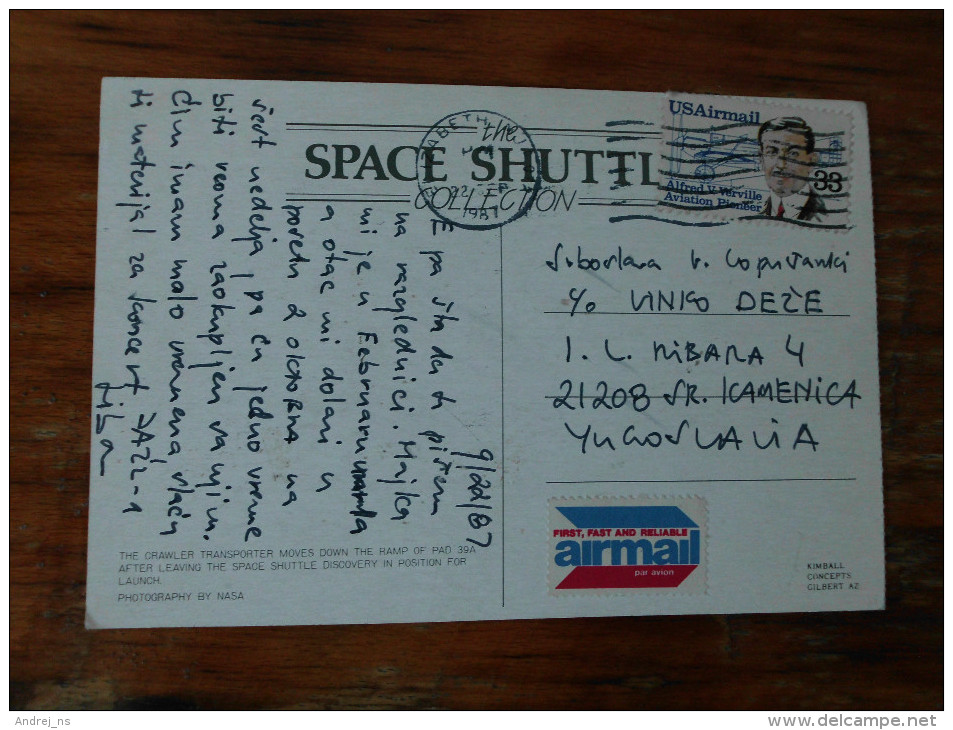 the
SPACE SHUTTL
COLLECTION
USAirmail
Alfred V. Verville
Aviation Pioneer
33
22
1987
9/22/87
E pa šta da ti pišem
na razglednici. Majka
mi je u Februaru umrla
a otac mi dolazi u
posetu 2 oktobra na
šest nedelja, pa ću jedno vreme
biti veoma zaokupljen sa njim.
Čim imam malo vremena slaću
ti materijal za koncert JAZZ-a
c/o VINKO DEŽE
I. L. RIBARA 4
21208 SR. KAMENICA
YUGOSLAVIA
FIRST, FAST AND RELIABLE
airmail
par avion
THE CRAWLER TRANSPORTER MOVES DOWN THE RAMP OF PAD 39A
AFTER LEAVING THE SPACE SHUTTLE DISCOVERY IN POSITION FOR
LAUNCH.
PHOTOGRAPHY BY NASA
KIMBALL
CONCEPTS
GILBERT AZ
Andrej_ns
www.delcampe.net